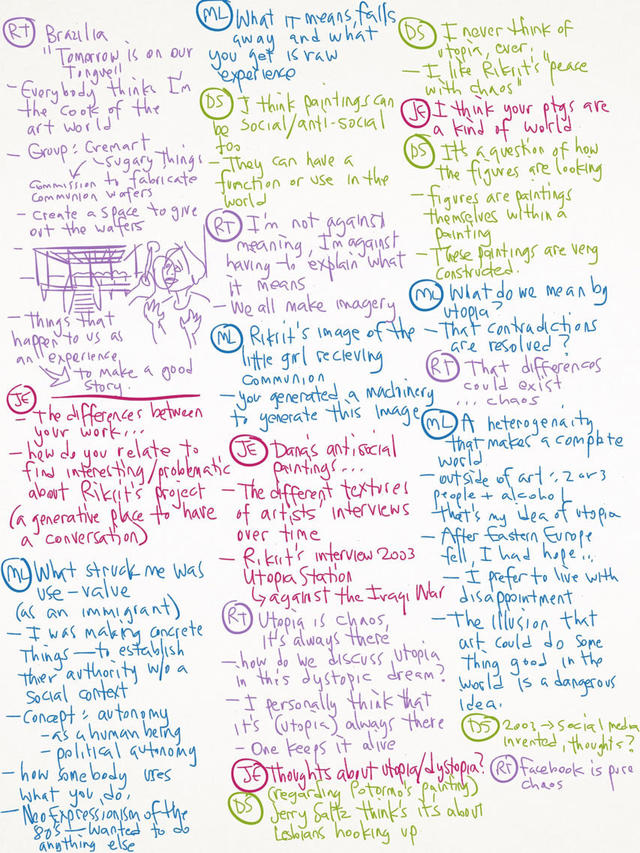 RT Brazilia
"Tomorrow is on our
Tongue"
- Everybody thinks I'm
the cook of the
art world
- Group: Cremart
sugary things
commission to fabricate
communion wafers
- create a space to give
out the wafers
- Things that
happen to us as
an experience
to make a good
story.
JE
- The differences between
your work...
- how do you relate to
find interesting/problematic
about Rikrit's project
(a generative place to have
a conversation)
ML What struck me was
use-value
(as an immigrant)
- I was making concrete
things - to establish
thier authority w/o a
social context
- Concept: autonomy
- as a human being
- political autonomy
- how somebody uses
what you do.
- Neo Expressionism of the
80's - wanted to do
anything else
ML What it means, falls
away and what
you get is raw
experience
DS I think paintings can
be social/anti-social
too
- They can have a
function or use in the
world
RT I'm not against
meaning, I'm against
having to explain what
it means
- We all make imagery
ML Rikrit's image of the
little girl recieving
communion
- you generated a machinery
to generate this image
JE Dana's antisocial
paintings...
- The different textures
of artists' interviews
over time
- Rikrit's interview 2003
Utopia Station
against the Iraqi War
RT Utopia is chaos,
it's always there
- how do we discuss utopia
in this dystopic dream?
- I personally think that
it's (utopia) always there
- One keeps it alive
JE Thoughts about utopia/dystopia?
DS (regarding Potormo's painting)
Jerry Saltz think's it's about
Lesbians hooking up
DS I never think of
utopia, ever.
- I like Rikrit's "peace
with chaos"
JE I think your ptgs are
a kind of world
DS It's a question of how
the figures are looking
- figures are paintings
themselves within a
painting
- These paintings are very
constructed.
ML What do we mean by
utopia?
- That contradictions
are resolved?
RT That differences
could exist
... chaos
ML A heterogeneity
that makes a complete
world
- outside of art: 2 or 3
people + alcohol
that's my idea of utopia
- After Eastern Europe
fell, I had hope...
- I prefer to live with
disappointment
- The illusion that
art could do some
thing good in the
world is a dangerous
idea.
DS 2003 → Social media
invented, thoughts?
RT facebook is pure
chaos